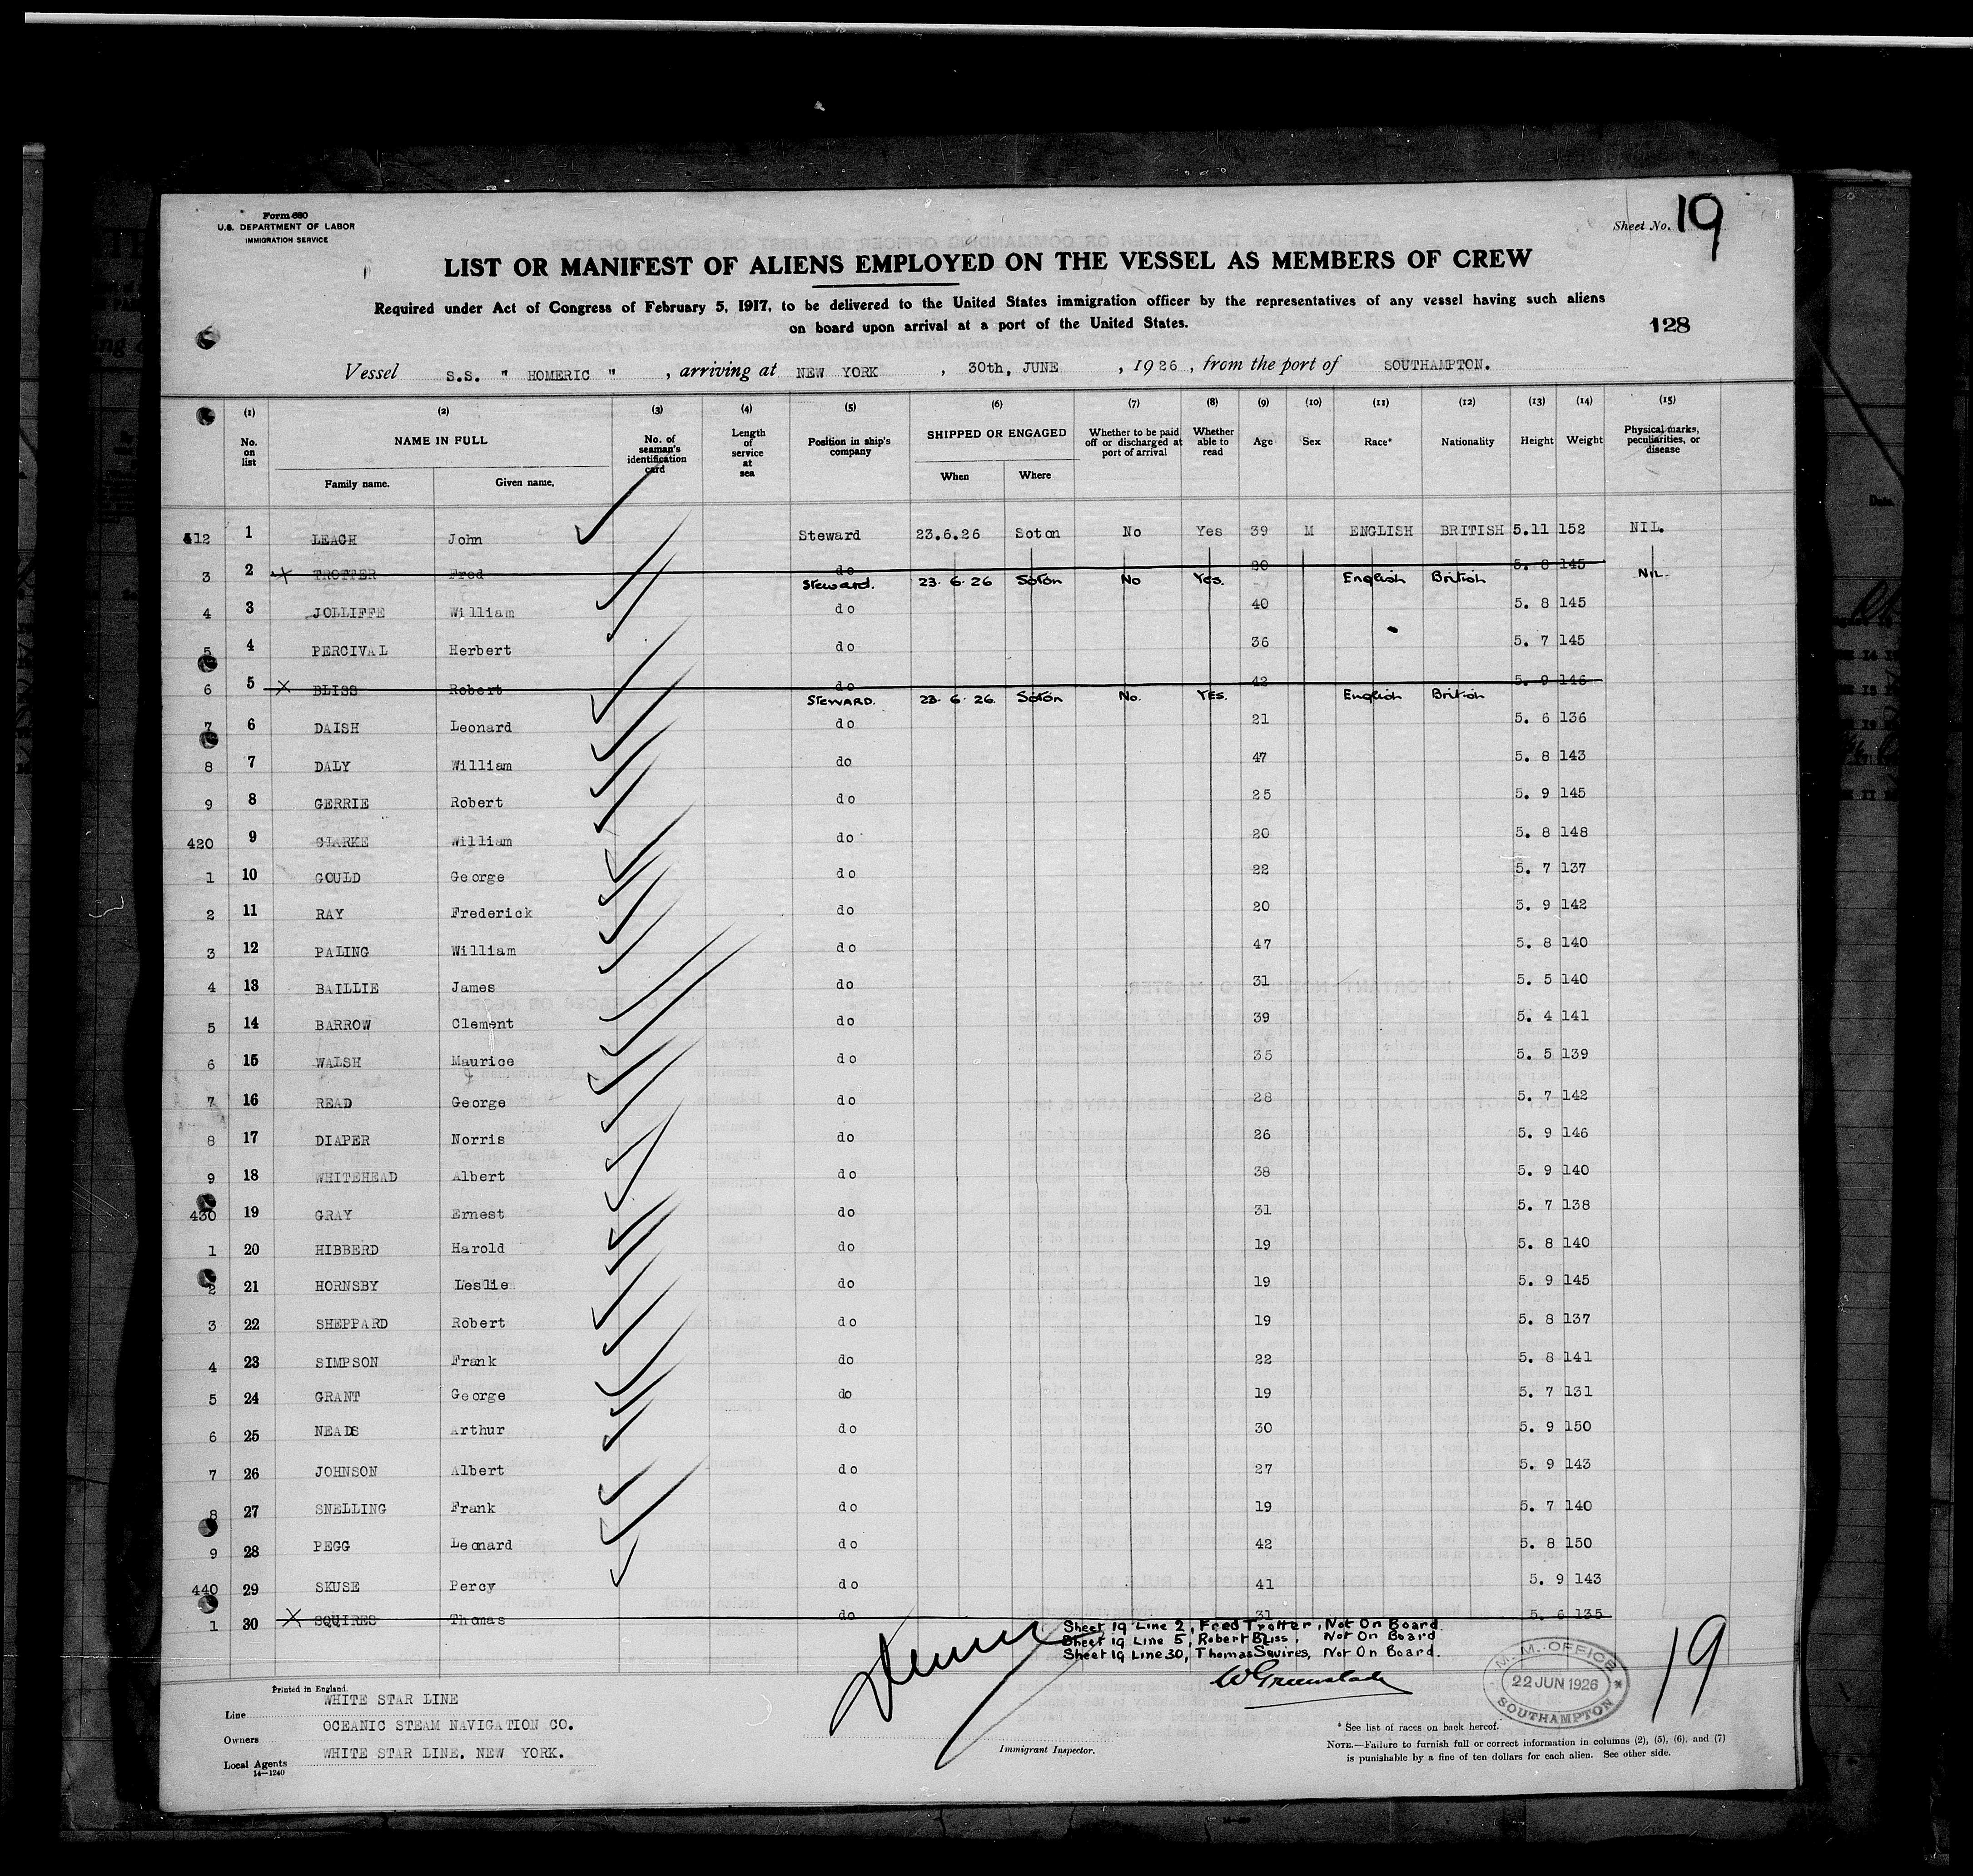 Form 680
U.S. DEPARTMENT OF LABOR
IMMIGRATION SERVICE
Sheet No. 19
LIST OR MANIFEST OF ALIENS EMPLOYED ON THE VESSEL AS MEMBERS OF CREW
Required under Act of Congress of February 5, 1917, to be delivered to the United States immigration officer by the representatives of any vessel having such aliens
on board upon arrival at a port of the United States.
128
Vessel S.S. " HOMERIC " , arriving at NEW YORK , 30th, JUNE , 1926 , from the port of SOUTHAMPTON.
(1) (2) (3) (4) (5) (6) (7) (8) (9) (10) (11) (12) (13) (14) (15)
No. on list NAME IN FULL Family name. Given name. No. of seaman's identification card Length of service at sea Position in ship's company SHIPPED OR ENGAGED When Where Whether to be paid off or discharged at port of arrival Whether able to read Age Sex Race* Nationality Height Weight Physical marks, peculiarities, or disease
412 1 LEACH John Steward 23.6.26 Soton No Yes 39 M ENGLISH BRITISH 5.11 152 NIL.
3 2 TROTTER Fred do 20 5. 8 145
Steward. 23. 6. 26 Soton No Yes. English British NIL.
4 3 JOLLIFFE William do 40 5. 8 145
5 4 PERCIVAL Herbert do 36 5. 7 145
6 5 BLISS Robert do 42 5. 9 146
STEWARD. 23. 6. 26. Soton No. YES. English British
7 6 DAISH Leonard do 21 5. 6 136
8 7 DALY William do 47 5. 8 143
9 8 GERRIE Robert do 25 5. 9 145
420 9 CLARKE William do 20 5. 8 148
1 10 GOULD George do 22 5. 7 137
2 11 RAY Frederick do 20 5. 9 142
3 12 PALING William do 47 5. 8 140
4 13 BAILLIE James do 31 5. 5 140
5 14 BARROW Clement do 39 5. 4 141
6 15 WALSH Maurice do 35 5. 5 139
7 16 READ George do 28 5. 7 142
8 17 DIAPER Norris do 26 5. 9 146
9 18 WHITEHEAD Albert do 38 5. 9 140
430 19 GRAY Ernest do 31 5. 7 138
1 20 HIBBERD Harold do 19 5. 8 140
2 21 HORNSBY Leslie do 19 5. 9 145
3 22 SHEPPARD Robert do 19 5. 8 137
4 23 SIMPSON Frank do 22 5. 8 141
5 24 GRANT George do 19 5. 7 131
6 25 NEADS Arthur do 30 5. 9 150
7 26 JOHNSON Albert do 27 5. 9 143
8 27 SNELLING Frank do 19 5. 7 140
9 28 PEGG Leonard do 42 5. 8 150
440 29 SKUSE Percy do 41 5. 9 143
1 30 SQUIRES Thomas do 31 5. 6 135
Sheet 19 Line 2, Fred Trotter, Not On Board.
Sheet 19 Line 5, Robert Bliss, Not On Board
Sheet 19 Line 30, Thomas Squires, Not On Board.
M.M. OFFICE
22 JUN 1926
SOUTHAMPTON
19
Printed in England.
Line WHITE STAR LINE
Owners OCEANIC STEAM NAVIGATION CO.
Local Agents WHITE STAR LINE. NEW YORK.
14—1240
Immigrant Inspector.
* See list of races on back hereof.
NOTE.—Failure to furnish full or correct information in columns (2), (5), (6), and (7)
is punishable by a fine of ten dollars for each alien. See other side.